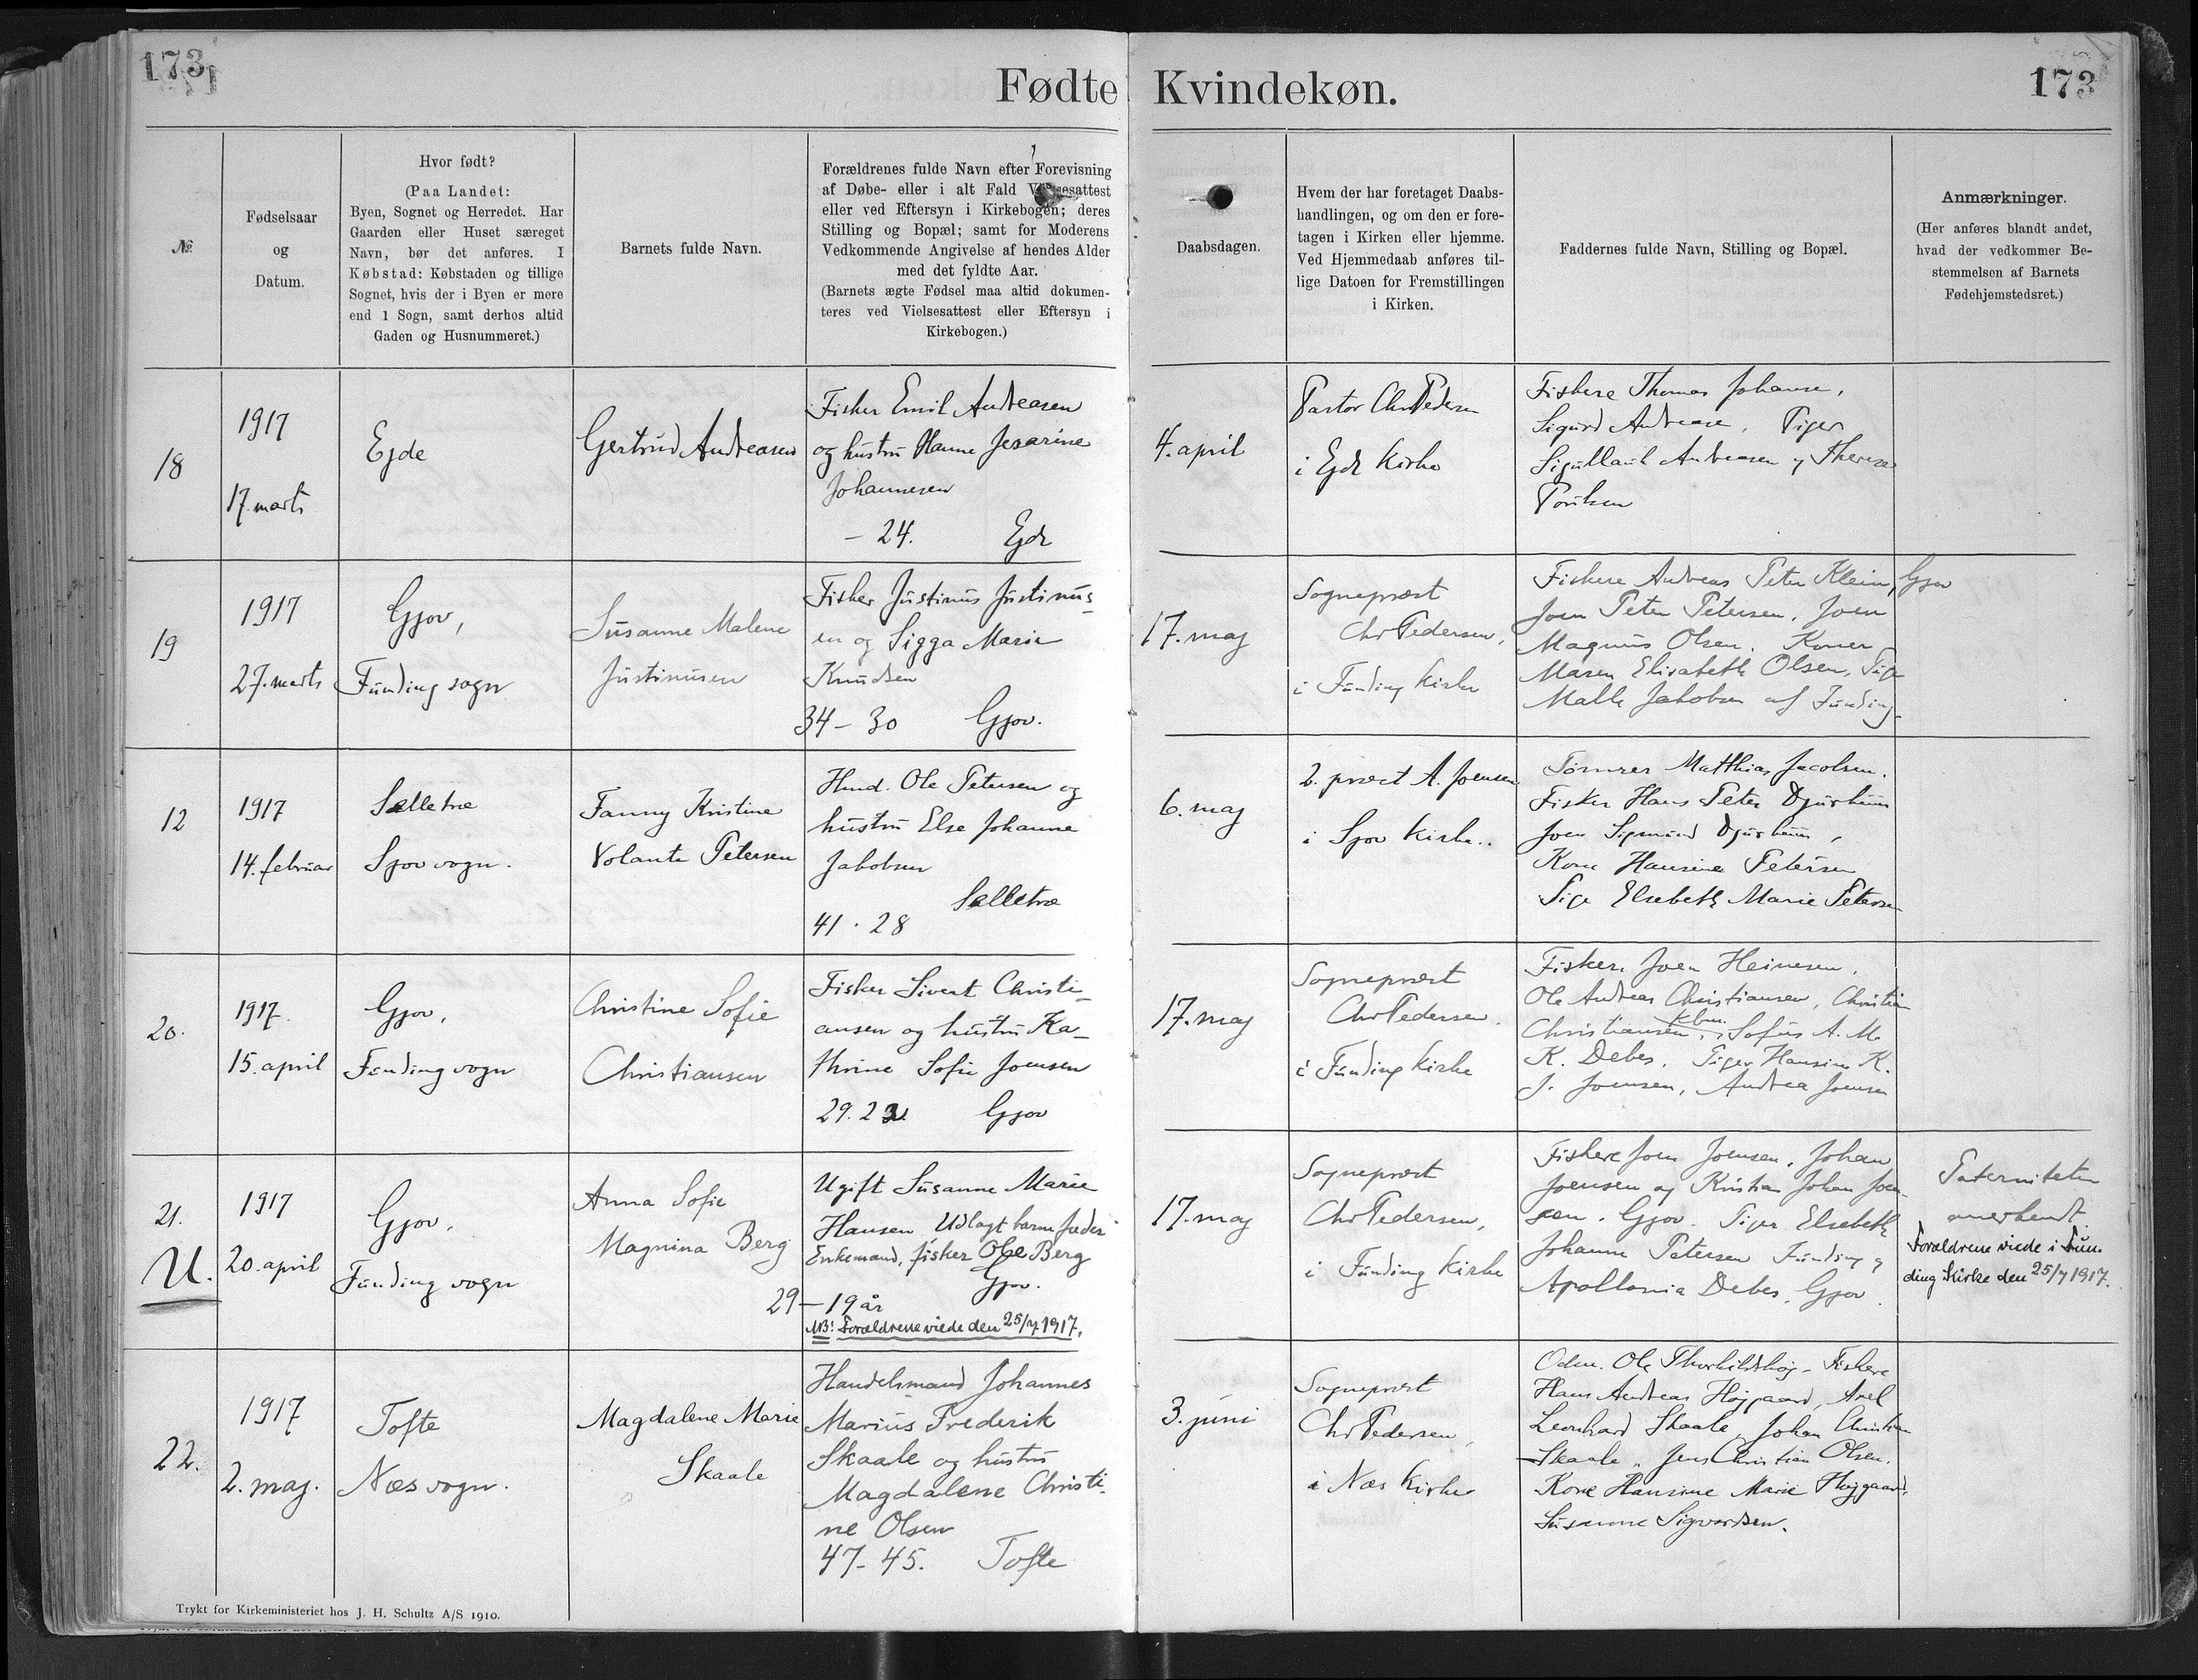 173
Fødte Kvindekøn.
173
№
Fødselsaar
og
Datum.
Hvor født?
(Paa Landet:
Byen, Sognet og Herredet. Har
Gaarden eller Huset særeget
Navn, bør det anføres. I
Købstad: Købstaden og tillige
Sognet, hvis der i Byen er mere
end 1 Sogn, samt derhos altid
Gaden og Husnummeret.)
Barnets fulde Navn.
Forældrenes fulde Navn efter Forevisning
af Døbe- eller i alt Fald Vielsesattest
eller ved Eftersyn i Kirkebogen; deres
Stilling og Bopæl; samt for Moderens
Vedkommende Angivelse af hendes Alder
med det fyldte Aar.
(Barnets ægte Fødsel maa altid dokumen-
teres ved Vielsesattest eller Eftersyn i
Kirkebogen.)
Daabsdagen.
Hvem der har foretaget Daabs-
handlingen, og om den er fore-
tagen i Kirken eller hjemme.
Ved Hjemmedaab anføres til-
lige Datoen for Fremstillingen
i Kirken.
Faddernes fulde Navn, Stilling og Bopæl.
Anmærkninger.
(Her anføres blandt andet,
hvad der vedkommer Be-
stemmelsen af Barnets
Fødehjemstedsret.)
18
1917
17. marts
Ejde
Gertrud Andreasen
Fisker Emil Andreasen
og hustru Hanne Jesarine
Johannesen
- 24. Ejde
4. april
Pastor Chr Pedersen
i Ejde Kirke
Fiskere Thomas Johanse,
Sigurd Andrease, Piger
Andreasen og Therese
Poulsen
19
1917
27. marts
Gjov,
Funding sogn
Susanne Malene
Justinusen
Fisker Justinus Justinus-
en og Sigga Marie
Knudsen
34 - 30 Gjov.
17. maj
Sognepræst
Chr Pedersen,
i Funding kirke
Fiskere Andreas Peter Klein, Gjov
Joen Peter Petersen, Joen
Magnus Olsen. Koner
Maren Elisabeth Olsen, Pige
Malle Jakobsen af Funding.
12
1917
14. februar
Selletræ
Sjov sogn.
Fanny Kristine
Volante Petersen
Hmd. Ole Petersen og
hustru Else Johanne
Jakobsen
Selletræ
41 . 28
6. maj
2. præst A. Joensen
i Sjov Kirke.
Tømrer Matthias Jacobsen.
Fisker Hans Peter Djurhuus
Joen Sigmund Djurhuus,
Kone Hansine Petersen
Pige Elsebeth Marie Petersen
20.
1917.
15. april
Gjov,
Funding sogn
Christine Sofie
Christiansen
Fisker Sivert Christi-
ansen og hustru Ka-
thrine Sofie Joensen
29. Gjov
17. maj
Sognepræst
Chr Pedersen.
i Funding kirke
Fiskere Joen Heinesen,
Ole Andreas Christiansen, Christian
Christiansen, Kbm. Sofus A. M.
K. Debes. Piger Hansine K.
J. Joensen, Andrea Joensen
21.
U.
1917
20. april
Gjov.
Funding sogn
Anna Sofie
Magnina Berg
Ugift Susanne Marie
Hansen. Udlagt barnefader
Enkemand, fisker Ole Berg
Gjov.
29 - 19 år
NB! Forældrene viede den 25/7 1917.
17. maj
Sognepræst
Chr Pedersen,
i Funding Kirke
Fiskere Joen Joensen, Johan
Joensen og Kristian Johan Joen-
sen. Gjov. Piger Elsebeth
Johanne Petersen Funding og
Apollonia Debes, Gjov.
Paterniteten
anerkendt
Forældrene viede i Fun-
ding Kirke den 25/7 1917.
22.
1917
2. maj.
Tofte
Næs sogn.
Magdalene Marie
Skaale
Handelsmand Johannes
Marius Frederik
Skaale og hustru
Magdalene Christi-
ne Olsen
47 - 45. Tofte
3. juni
Sognepræst
Chr Pedersen,
i Næs kirke
Odm. Ole Thorkildshøj - Fiskere
Hans Andreas Højgaard, Axel
Leonhard Skaale, Johan Christian
Skaale, Jens Christian Olsen.
Kone Hansine Marie Højgaard,
Susanne Sigvardsen.
Trykt for Kirkeministeriet hos J. H. Schultz A/S 1910.